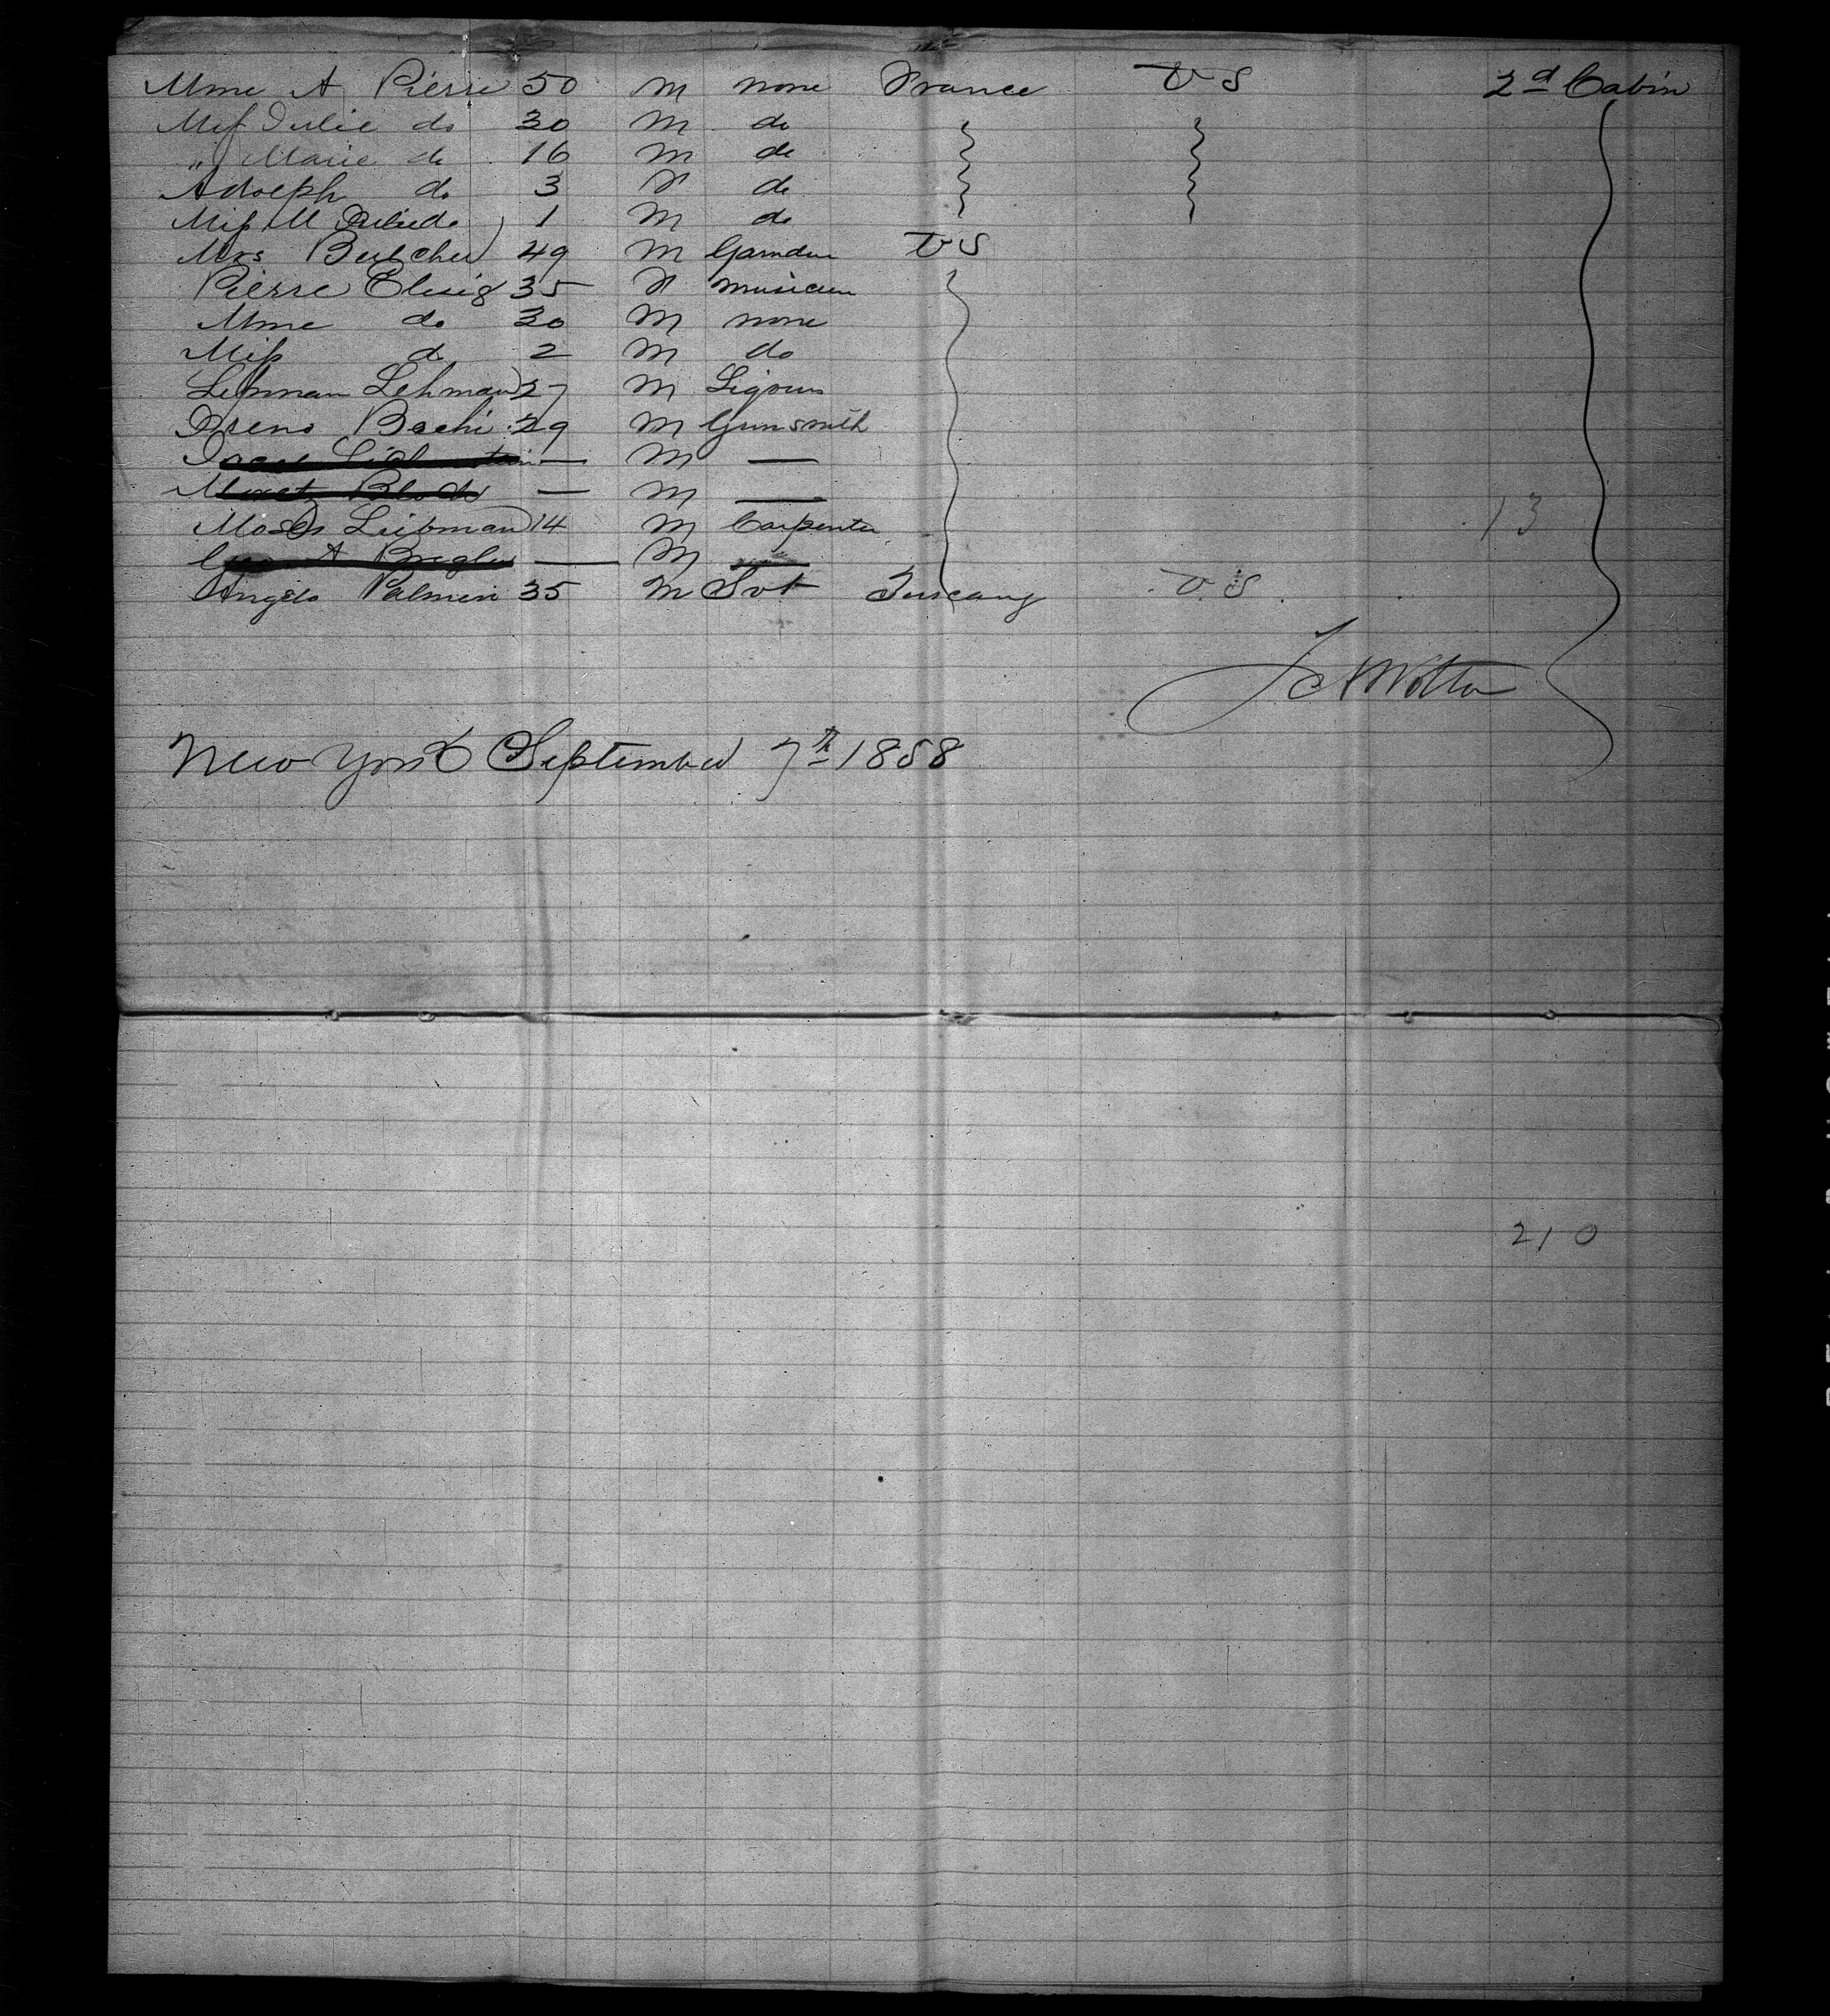 Mme A Pierre 50 M none France U S 2d Cabin
Miss Julie do 30 M do
" Marie do 16 M do
Adolph do 3 M do
Miss M do 1 M do
Mrs Butcher 49 M U S
Pierre Elsig 35 M musician
Mme do 30 M none
Miss do 2 M do
Lehman Lehman 27 M
Bachi 29 M Gunsmith
Isaac — M —
Blodt — M —
Moses Liebman 14 M Carpenter 13
A — M —
Angelo Palmin 35 M Svt Tuscany U. S.
J A Wotton
New York September 7th 1858
210